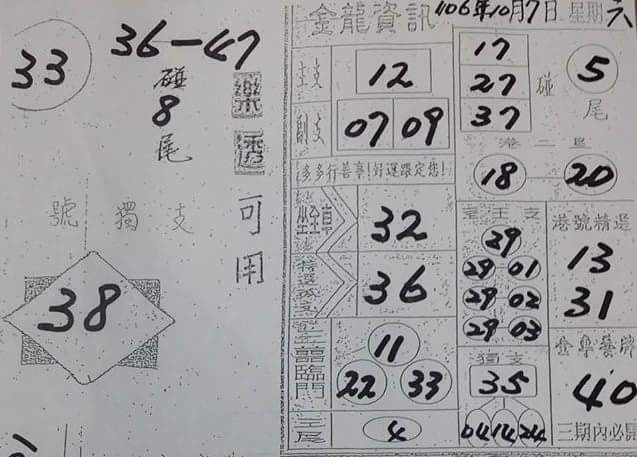 33
36-47
碰
8
尾
樂透
可用
號獨支
38
金龍資訊
106年10月7日 星期六
主支
12
副支
07 09
多多行善事!好運跟定您!
17
27
37
碰
5
尾
港二星
18-20
坐車
32
36
臨門
11
22 33
4
29
29 01
29 02
29 03
獨支
35
04 14 24
港號精選
13
31
40
三期內必開